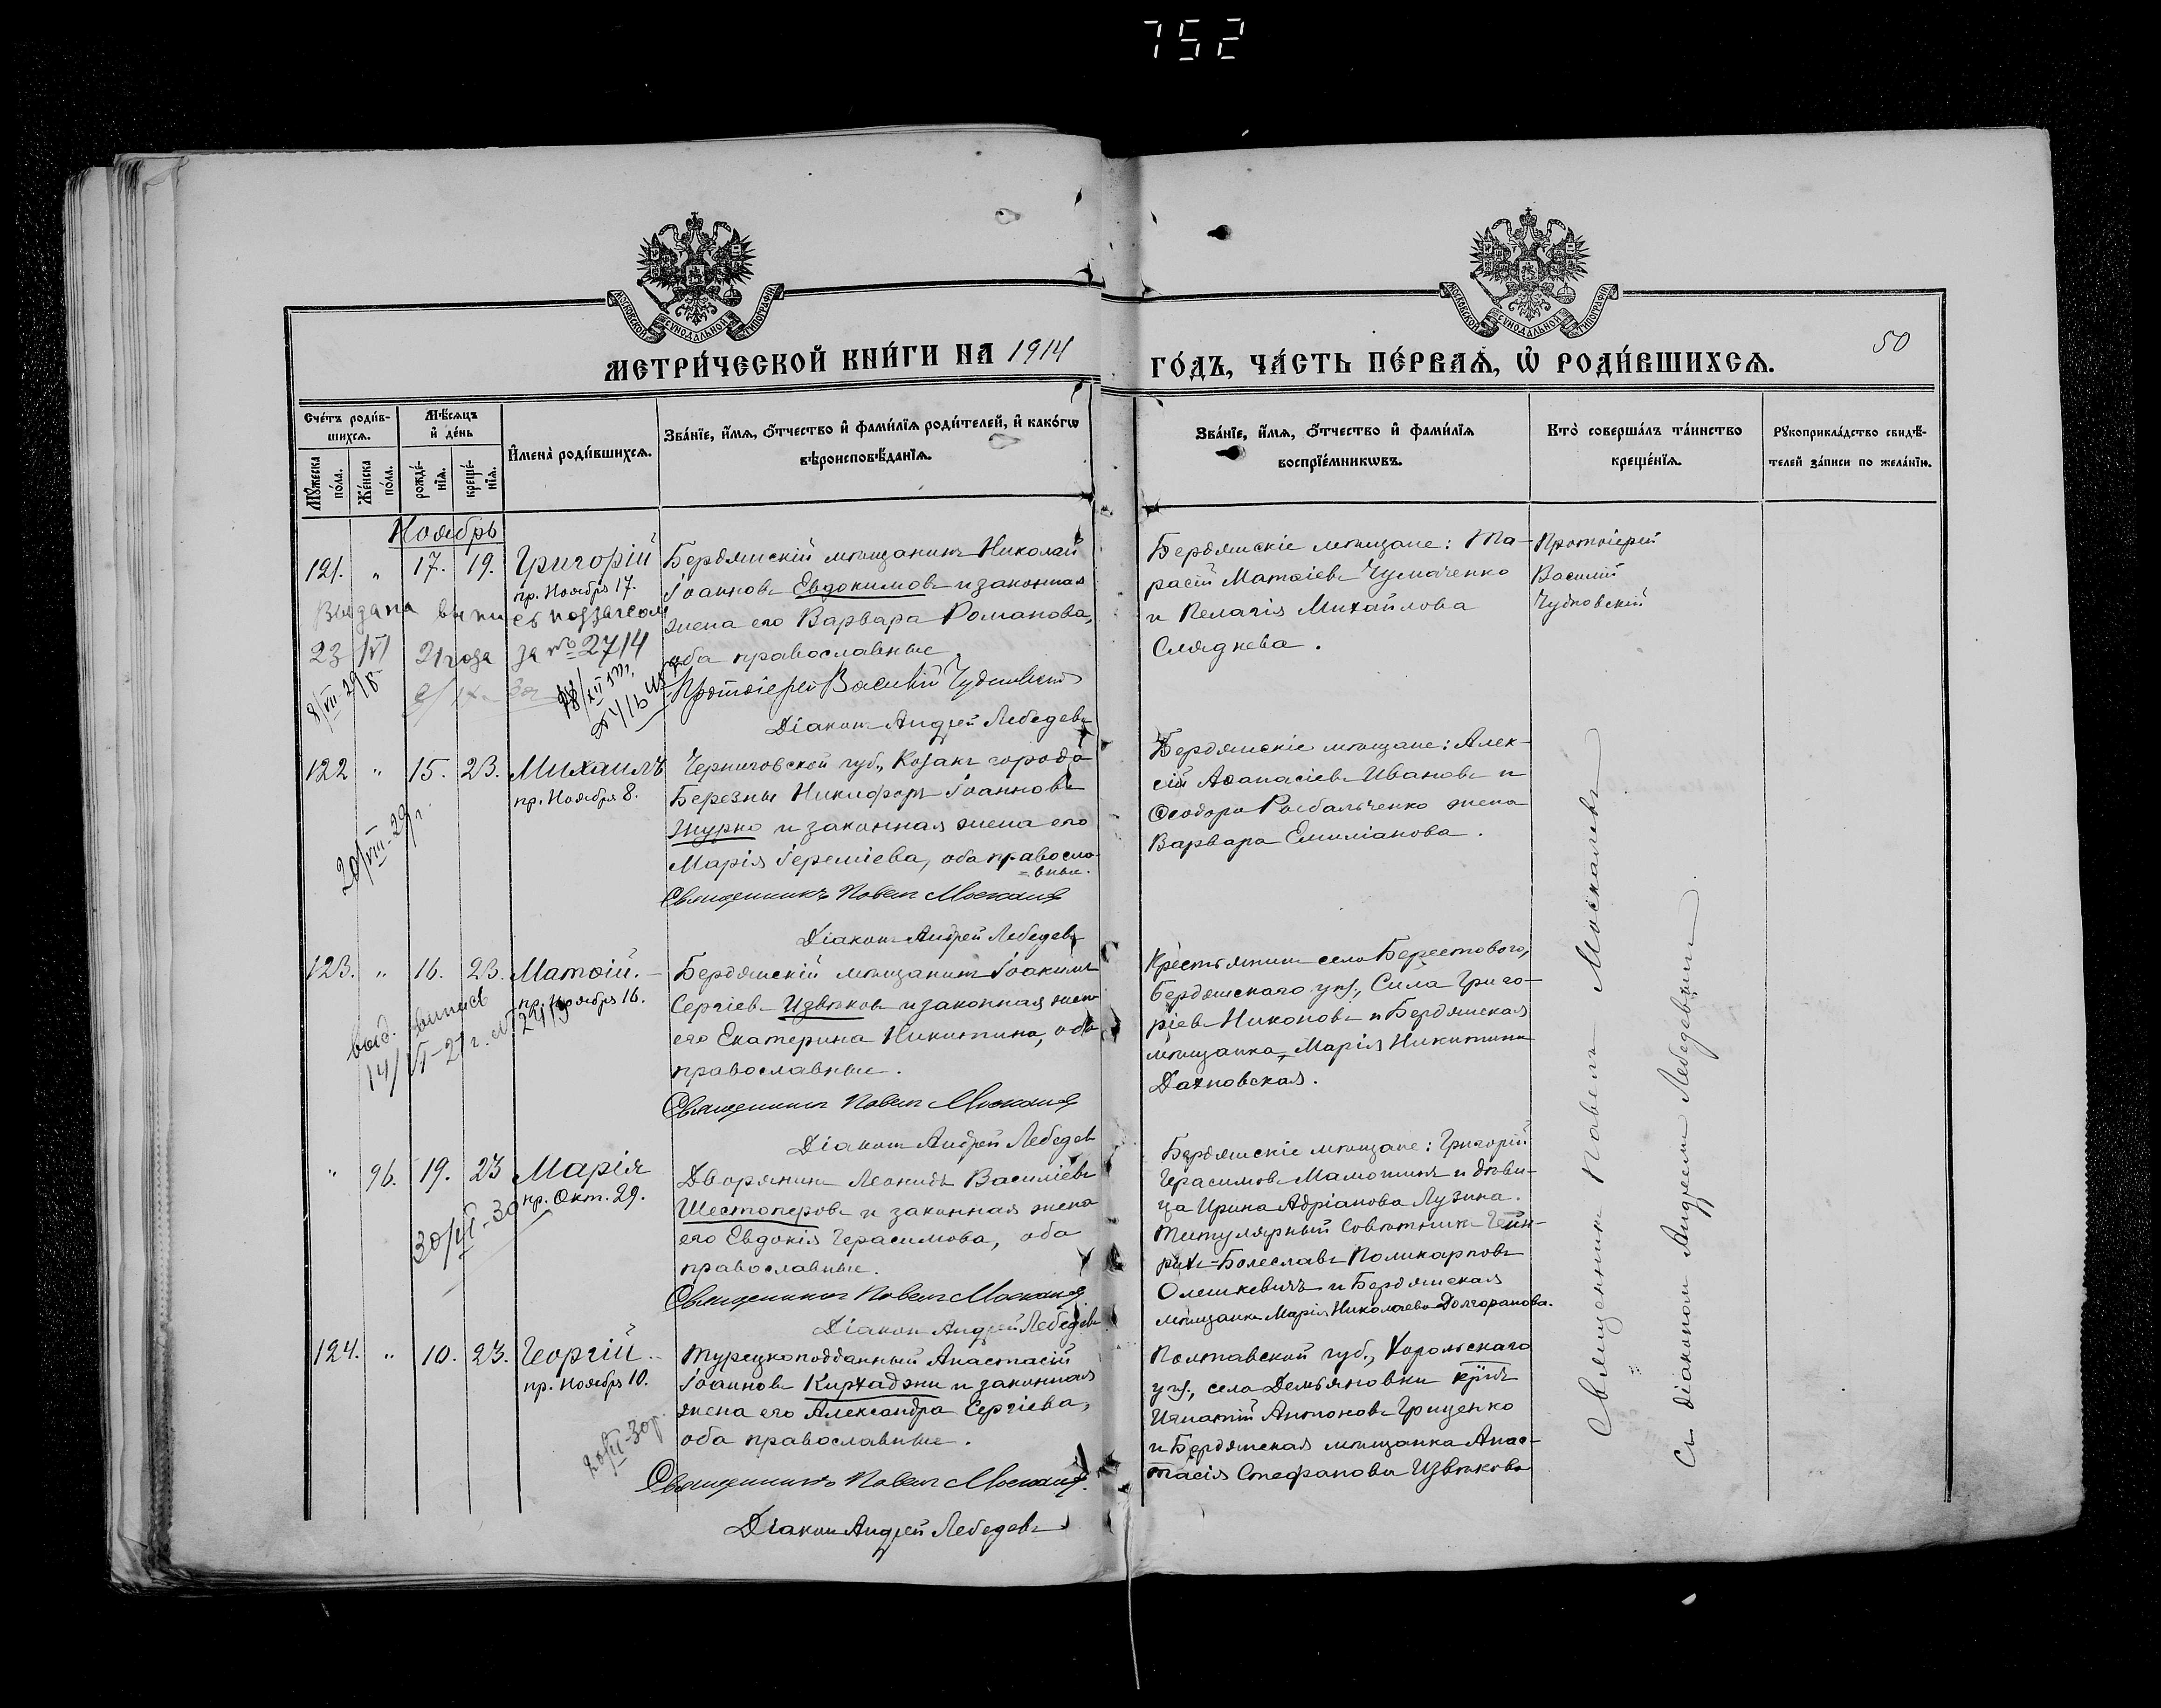 752
МОСКОВСКОЙ СУНОДАЛЬНОЙ ТИПОГРАФІИ
МОСКОВСКОЙ СУНОДАЛЬНОЙ ТИПОГРАФІИ
МЕТРИ́ЧЕСКОЙ КНИ́ГИ НА 1914
ГО́ДЪ, ЧА́СТЬ ПЕ́РВАѦ, Ѡ҆ РОДИ́ВШИХСѦ.
50
Сче́тъ роди́в-
шихсѧ.
Мѣ́сѧцъ
и҆ де́нь
Мꙋ́жеска
по́ла.
Же́нска
по́ла.
рожде́-
нїѧ.
креще́-
нїѧ.
И҆мена̀ роди́вшихсѧ.
Зва́нїе, и҆́мѧ, ѻ҆́тчество и҆ фами́лїѧ роди́телей, и҆ како́гѡ
вѣроисповѣ́данїѧ.
Зва́нїе, и҆́мѧ, ѻ҆́тчество и҆ фами́лїѧ
воспрїе́мникѡвъ.
Кто̀ соверша́лъ та́инство
креще́нїѧ.
Рꙋкоприкла́дство свидѣ́-
телей за́писи по жела́нїю.
Ноябрь
121. „ 17. 19. Григорій
пр. Ноября 17.
Выдана
23/VI 21 года за № 2714
8/VII-29
Бердянскій мѣщанинъ Николай
Іоанновъ Евдокимовъ и законная
жена его Варвара Романова,
оба православные
Протоіерей Василій Чудновскій
Діаконъ Андрей Лебедевъ
Бердянскіе мѣщане: Та-
расій Матѳіевъ Чумаченко
и Пелагія Михайлова
Сляднева.
Протоіерей
Василій
Чудновскій
122 „ 15. 23. Михаилъ
пр. Ноября 8.
20/VIII-29 г.
Черниговской губ., Козакъ города
Березны Никифоръ Іоанновъ
Журко и законная жена его
Марія Іереміева, оба правосла-
=вные.
Священникъ Павелъ Москалевъ
Діаконъ Андрей Лебедевъ
Бердянскіе мѣщане: Алек-
сій Аѳанасіевъ Ивановъ и
Ѳеодора Рыбальченко жена
Варвара Емиліанова.
123. „ 16. 23. Матѳій.
пр. Ноября 16.
выд. выпись
14/VI-21 г. №
Бердянскій мѣщанинъ Іоакимъ
Сергіевъ Извѣковъ и законная жена
его Екатерина Никитина, оба
православные.
Священникъ Павелъ Москалевъ
Діаконъ Андрей Лебедевъ
Крестьянинъ села Берестового,
Бердянскаго уѣз., Сила Григо-
ріевъ Никоновъ и Бердянская
мѣщанка, Марія Никитина
Дахновская.
„ 96. 19. 23 Марія
пр. Окт. 29.
30/VI-30
Дворянинъ Леонидъ Василіевъ
Шестоперовъ и законная жена
его Евдокія Герасимова, оба
православные.
Священникъ Павелъ Москалевъ
Діаконъ Андрей Лебедевъ
Бердянскіе мѣщане: Григорій
Герасимовъ Мамотинъ и дѣви-
ца Ирина Адріанова Лузина.
Титулярный Совѣтникъ Гейн-
рихъ-Болеславъ Поликарповъ
Олешкевичъ и Бердянская
мѣщанка Марія Николаева Долгоранова.
124. „ 10. 23. Георгій
пр. Ноября 10.
Турецкоподданный Анастасій
Іоанновъ Кирхаджи и законная
жена его Александра Сергіева,
оба православные.
Священникъ Павелъ Москалевъ
Діаконъ Андрей Лебедевъ
Полтавской губ., Хорольскаго
уѣз., села Демьяновки кр̈нъ
Игнатій Антоновъ Гриценко
и Бердянская мѣщанка Анас-
тасія Стефанова Извѣкова
Священникъ Павелъ Москалевъ
Съ діакономъ Андреемъ Лебедевымъ